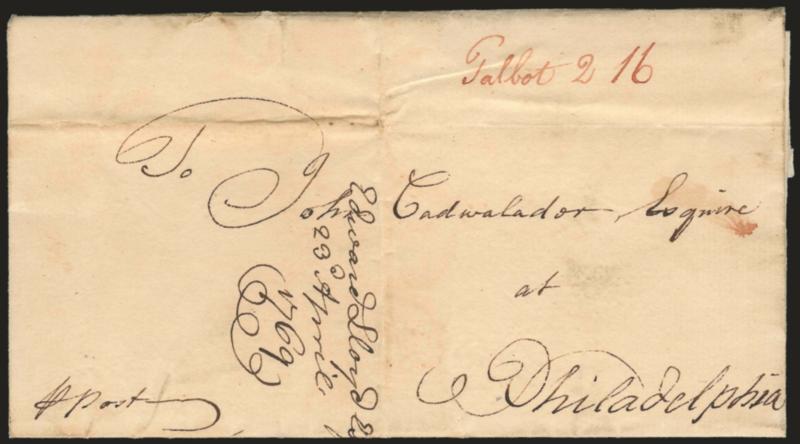 Talbot 2 16
To John Cadwalador Esquire
at
Philadelphia
Post
Edward Lloyd
23 April
1769